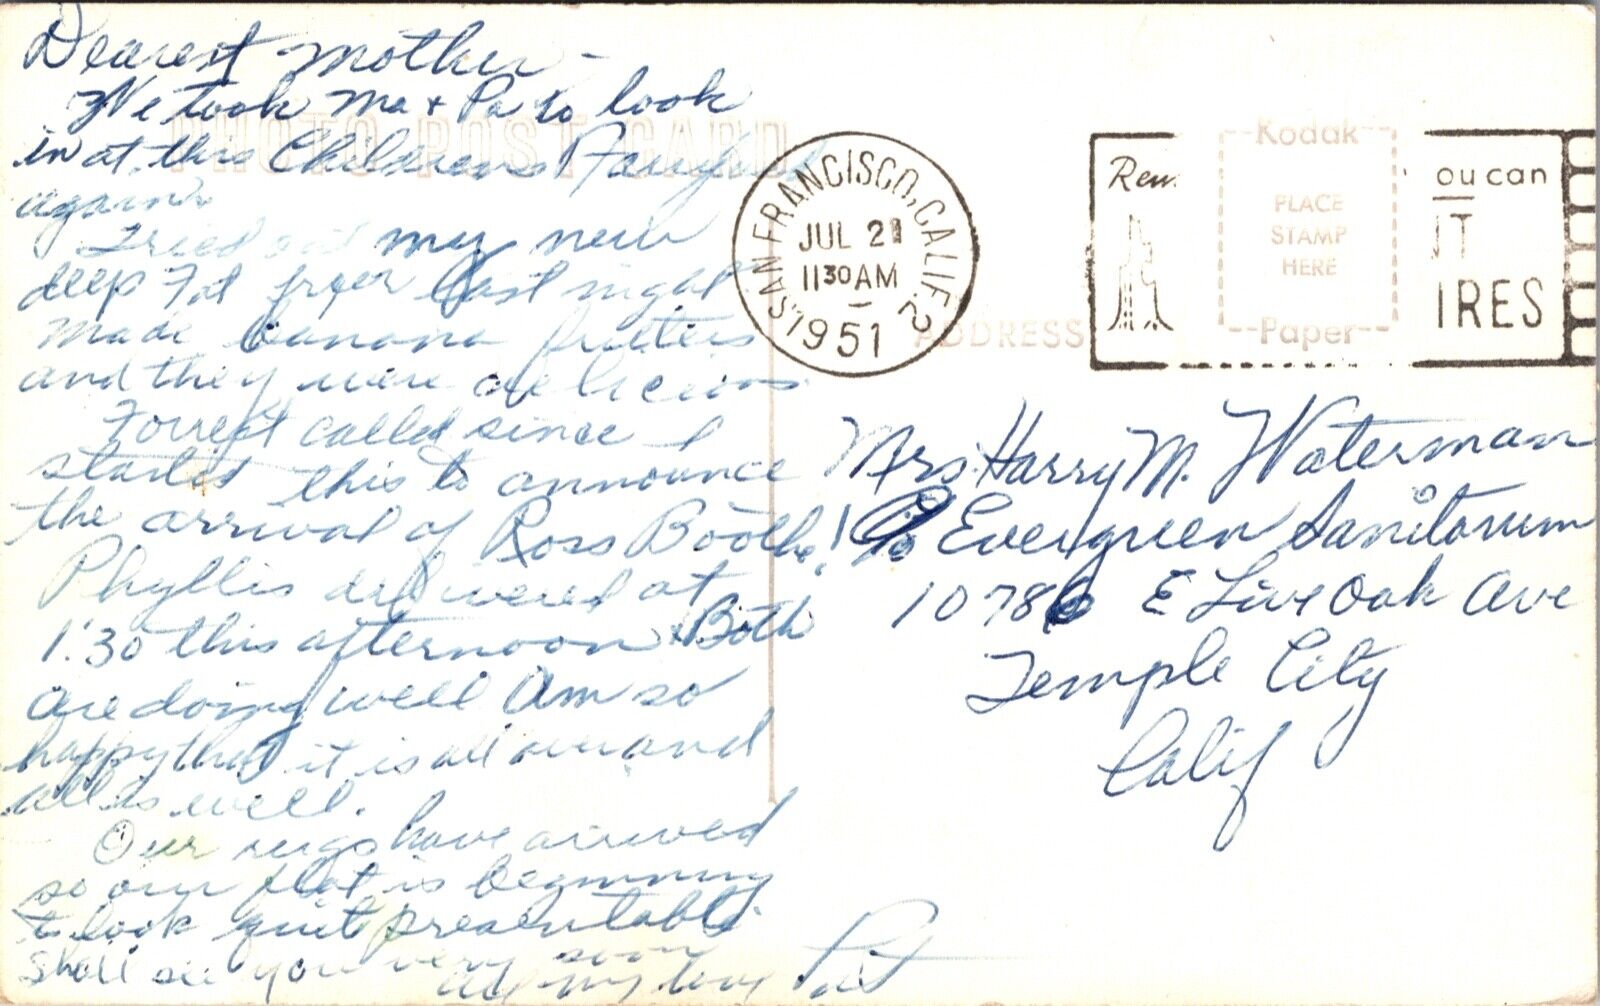 Dearest Mother -
We took Ma & Pa to look
in at this Childrens Fairyland
again.
Tried out my new
deep Fat fryer last night
made banana fritters
and they were delicious.
Forrest called since I
started this to announce
the arrival of Ross Boothe!
Phyllis delivered at
1:30 this afternoon. Both
are doing well Am so
happy that it is all over and
all is well.
Our rugs have arrived
so our flat is beginning
to look quite presentable.
Shall see you very soon
All my love Pat
PHOTO POST CARD
SAN FRANCISCO, CALIF. 2
JUL 21
11 30 AM
1951
Rem
ou can
NT
IRES
Kodak
PLACE
STAMP
HERE
Paper
ADDRESS
Mrs. Harry M. Waterman
c/o Evergreen Sanitorium
10786 E Live Oak Ave
Temple City
Calif